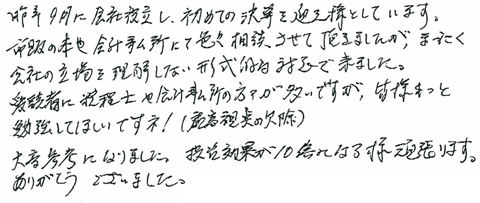 昨年9月に会社設立し、初めての決算を迎え様としています。
市販の本や会計事ム所にて色々相談させて頂きましたが、まったく
会社の立場を理解しない形式的な対応で来ました。
受験者に税理士や会計事ム所の方々が多いですが、皆様もっと
勉強してほしいですネ!(顧客視点の欠除)
大変参考になりました。投資効果が10倍になる様頑張ります。
ありがとうございました。